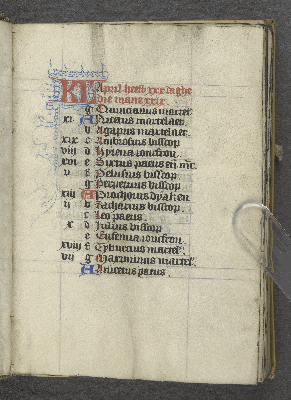 KL April heeft xxx daghe
die mane xxix.
g Quincianus martel'
xi A Nicetus martelaer
b Agapus martelaer
xix c Ambrosius bisscop
viii d Yrena ioncfrou
xvi e Sixtus paeus en mr
v f Celestius bisscop
g Perpetuus bisscop
xiii A Prochorus dyaken
ii b bisscop
c Leo paeus
x d Julius bisscop
e Eufemia ioncfrou
xviii f Tyburcius martel'
vii g Maximinus martel'
A Anicetus paeus